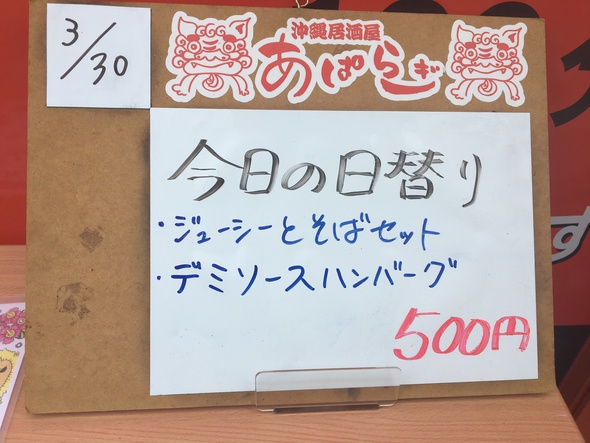 3/30
沖縄居酒屋
あぱらぎ
今日の日替り
・ジューシーとそばセット
・デミソースハンバーグ
500円